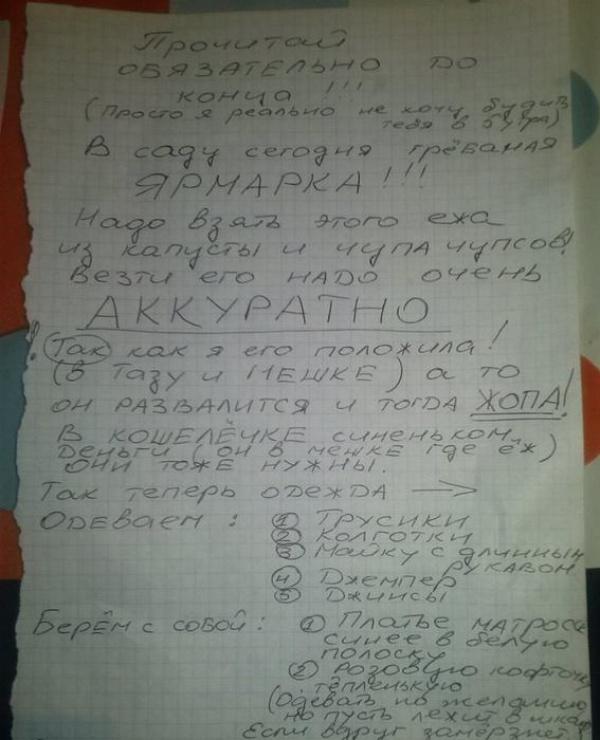 Прочитай
ОБЯЗАТЕЛЬНО ДО
конца!!!
(Просто я реально не хочу будить
тебя в
В саду сегодня грёбаная
ЯРМАРКА!!!
Надо взять этого ежа
из капусты и чупа чупсов!
Везти его НАДО очень
АККУРАТНО
! Так как я его положила!
(В Тазу и МЕШКЕ) а то
он РАЗВАЛИТСЯ и тогда ЖОПА!
В КОШЕЛЁЧКЕ синеньком
Деньги (он в мешке где ёж)
они тоже нужны.
Так теперь одежда →
Одеваем: ① Трусики
② Колготки
③ Майку с длинным
рукавом
④ Джемпер
⑤ Джинсы
Берём с собой: ① Платье матроск
синее в белую
полоску
② розовую кофточк
тёпленькую
(Одевать по желанию
но пусть лежит в шкаф
Если вдруг замёрзнет